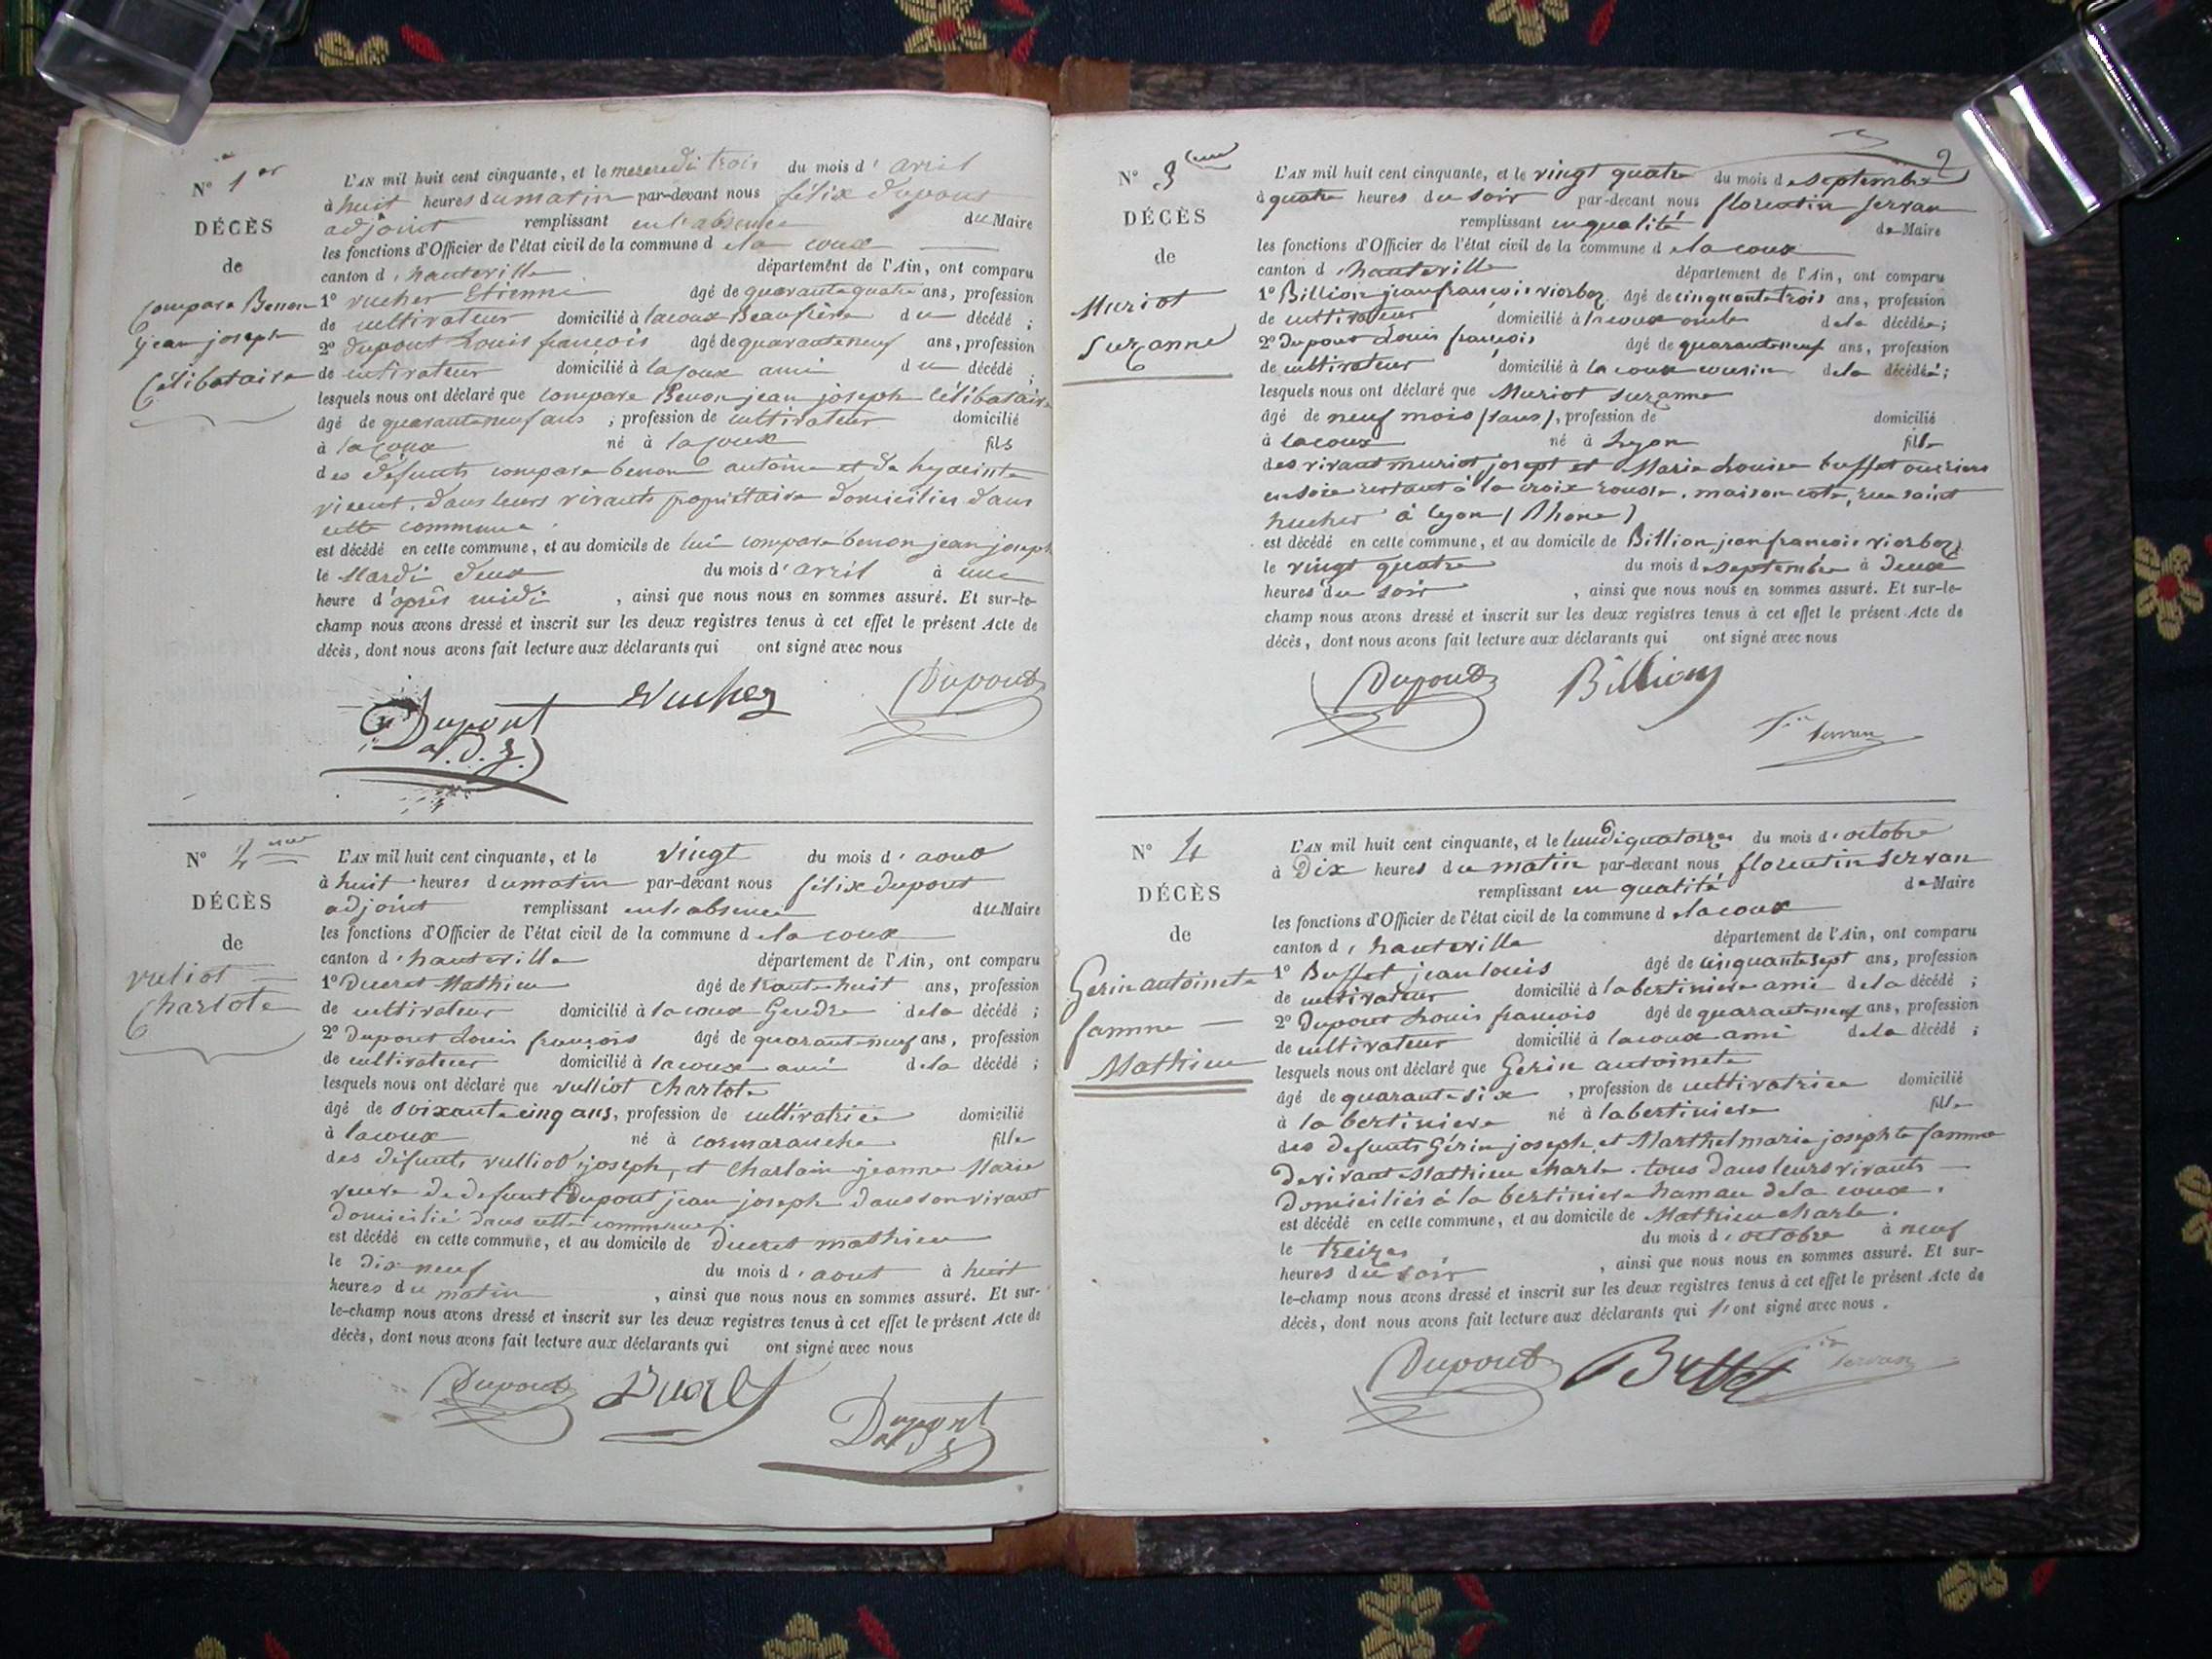 N° 1er
DÉCÈS
de
compare Benon
jean joseph
Célibataire
L'AN mil huit cent cinquante, et le mercredi trois du mois d'avril
à huit heures du matin par-devant nous félix dupont
adjoint remplissant en l'absence du Maire
les fonctions d'Officier de l'état civil de la commune de la coux
canton d'hauteville département de l'Ain, ont comparu
1° vucher Etienne âgé de quarante quatre ans, profession
de cultivateur domicilié à lacoux Beaufrère du décédé ;
2° dupont Louis françois âgé de quaranteneuf ans, profession
de cultivateur domicilié à lacoux ami du décédé ;
lesquels nous ont déclaré que compare Benon jean joseph Célibataire
âgé de quaranteneuf ans , profession de cultivateur domicilié
à lacoux né à lacoux fils
des défunts compare benon antoine et de hyacinte
vicent, dans leurs vivants propriétaire domicilies dans
cette commune
est décédé en cette commune, et au domicile de lui compare benon jean joseph
le Mardi deux du mois d'avril à une
heure d'après midi , ainsi que nous nous en sommes assuré. Et sur-le-
champ nous avons dressé et inscrit sur les deux registres tenus à cet effet le présent Acte de
décès, dont nous avons fait lecture aux déclarants qui ont signé avec nous
Vucher Dupont
Dupont
N° 2
DÉCÈS
de
vuliot
Charlote
L'AN mil huit cent cinquante, et le vingt du mois d'aout
à huit heures du matin par-devant nous félix dupont
adjoint remplissant en l'absence du Maire
les fonctions d'Officier de l'état civil de la commune de la coux
canton d'hauteville département de l'Ain, ont comparu
1° Ducret Mathieu âgé de trente huit ans, profession
de cultivateur domicilié à la coux Gendre de la décédé ;
2° Dupont Louis françois âgé de quaranteneuf ans, profession
de cultivateur domicilié à lacoux ami de la décédé ;
lesquels nous ont déclaré que vulliot Charlote
âgé de soixante cinq ans, profession de cultivatrice domicilié
à lacoux né à cormaranche fille
des défunts vulliot joseph, et Charlain jeanne Marie
veuve de defunt Dupont jean joseph dans son vivant
domicilié dans cette commune.
est décédé en cette commune, et au domicile de Ducret mathieu
le dix neuf du mois d'aout à huit
heures du matin , ainsi que nous nous en sommes assuré. Et sur-
le-champ nous avons dressé et inscrit sur les deux registres tenus à cet effet le présent Acte de
décès, dont nous avons fait lecture aux déclarants qui ont signé avec nous
Dupont Ducret
Dupont
2
N° 3eme
DÉCÈS
de
Muriot
Suzanne
L'AN mil huit cent cinquante, et le vingt quatre du mois de septembre
à quatre heures du soir par-devant nous florentin servan
remplissant en qualité de Maire
les fonctions d'Officier de l'état civil de la commune de lacoux
canton d'hauteville département de l'Ain, ont comparu
1° Billion jean françois âgé de cinquante trois ans, profession
de cultivateur domicilié à lacoux oncle de la décédée ;
2° Dupont Louis françois âgé de quaranteneuf ans, profession
de cultivateur domicilié à lacoux cousin de la décédée ;
lesquels nous ont déclaré que Muriot suzanne
âgé de neuf mois (sans), profession de domicilié
à lacoux né à Lyon fille
des vivant muriot josept et Marie Louise buffet ouvriers
en soie restant à la croix rousse, maison cote, rue saint
à Lyon (Rhone)
est décédé en cette commune, et au domicile de Billion jean francois
le vingt quatre du mois de septembre à deux
heures du soir , ainsi que nous nous en sommes assuré. Et sur-le-
champ nous avons dressé et inscrit sur les deux registres tenus à cet effet le présent Acte de
décès, dont nous avons fait lecture aux déclarants qui ont signé avec nous
Dupont Billion
Servan
N° 4
DÉCÈS
de
Gerin antoinete
famme
Mathieu
L'AN mil huit cent cinquante, et le lundi quatorze du mois d'octobre
à Dix heures du matin par-devant nous florentin servan
remplissant en qualité de Maire
les fonctions d'Officier de l'état civil de la commune de lacoux
canton d'hauteville département de l'Ain, ont comparu
1° Buffet jean louis âgé de cinquante sept ans, profession
de cultivateur domicilié à la bertiniere ami de la décédé ;
2° Dupont Louis francois âgé de quaranteneuf ans, profession
de cultivateur domicilié à lacoux ami de la décédé ;
lesquels nous ont déclaré que Gerin antoinete
âgé de quarante six , profession de cultivatrice domicilié
à la bertiniere né à la bertiniere fille
des defunts Gérin joseph et Marthel marie josephte famme
de vivant Mathieu charle. tous dans leurs vivants
domiciliés à la bertiniere hamau de la coux.
est décédé en cette commune, et au domicile de Mathieu charle.
le treize du mois d'octobre à neuf
heures du soir , ainsi que nous nous en sommes assuré. Et sur-
le-champ nous avons dressé et inscrit sur les deux registres tenus à cet effet le présent Acte de
décès, dont nous avons fait lecture aux déclarants qui l'ont signé avec nous .
Dupont Buffet Servan